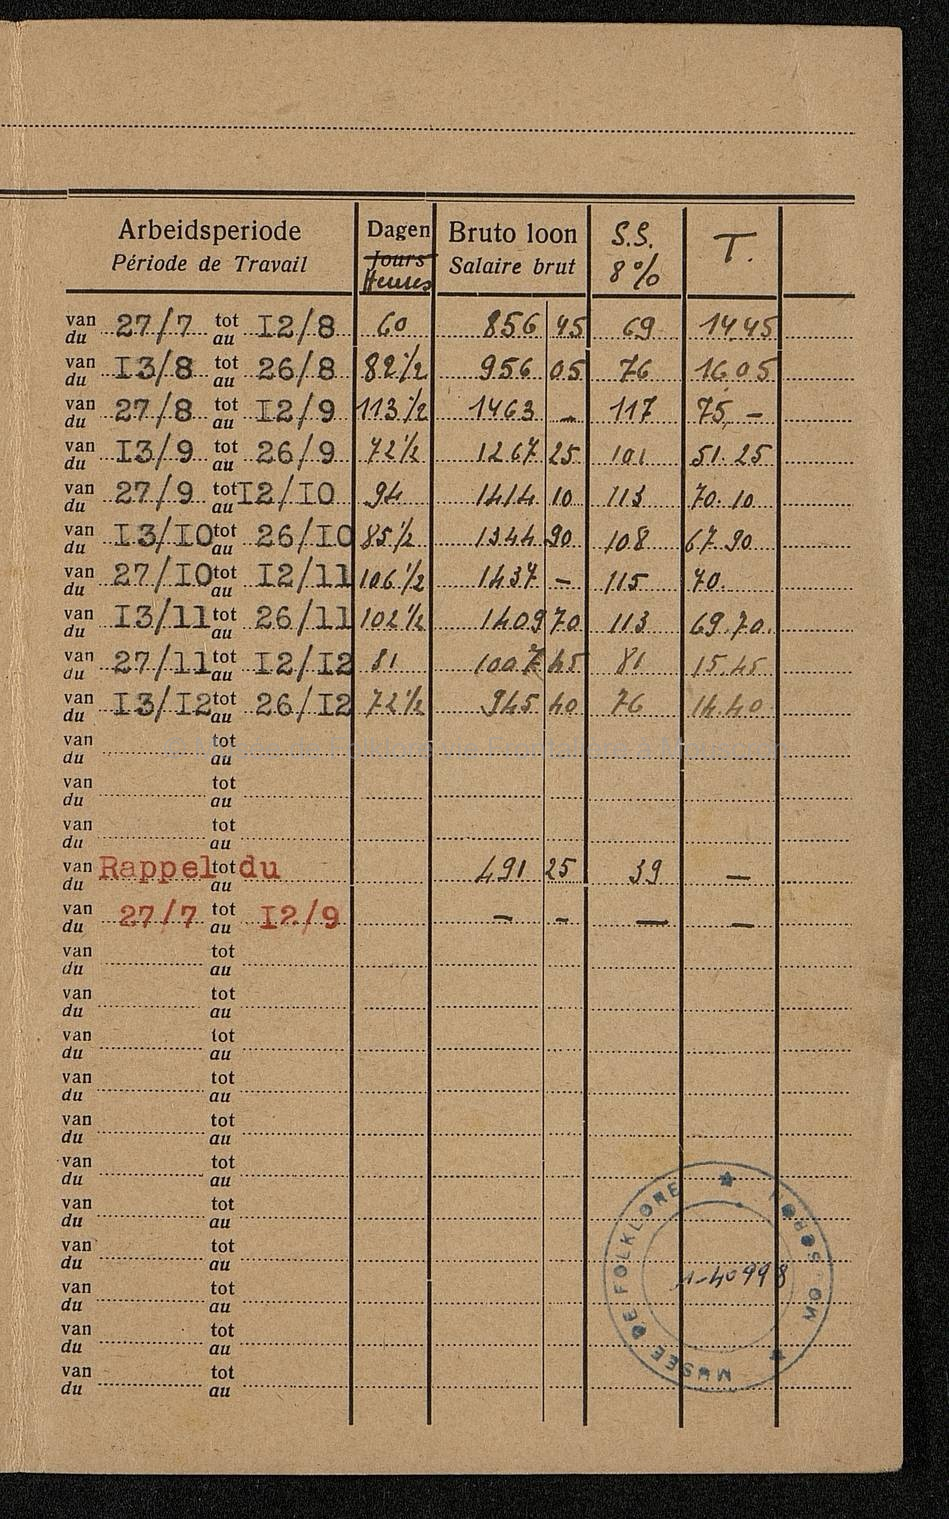 Arbeidsperiode Dagen Bruto loon S.S. T.
Période de Travail Jours Salaire brut 8%
Heures
van 27/7 tot 12/8 60 856 45 69 14.45
du au
van 13/8 tot 26/8 82 1/2 956 05 76 16.05
du au
van 27/8 tot 12/9 113 1/2 1463 - 117 75 -
du au
van 13/9 tot 26/9 72 1/2 1267 25 101 51.25
du au
van 27/9 tot 12/10 94 1414 10 113 70.10
du au
van 13/10 tot 26/10 85 1/2 1344 90 108 67.90
du au
van 27/10 tot 12/11 106 1/2 1437 - 115 70.
du au
van 13/11 tot 26/11 102 1/2 1409 70 113 69.70.
du au
van 27/11 tot 12/12 81 1007 45 81 15.45
du au
van 13/12 tot 26/12 72 1/2 945 40 76 14.40
du au
van tot
du au
van tot
du au
van tot
du au
van Rappel tot du 491 25 39 -
du au
van 27/7 tot 12/9 - - - -
du au
van tot
du au
van tot
du au
van tot
du au
van tot
du au
van tot
du au
van tot
du au
van tot
du au
van tot
du au
van tot
du au
van tot
du au
van tot
du au
MUSEE DE FOLKLORE